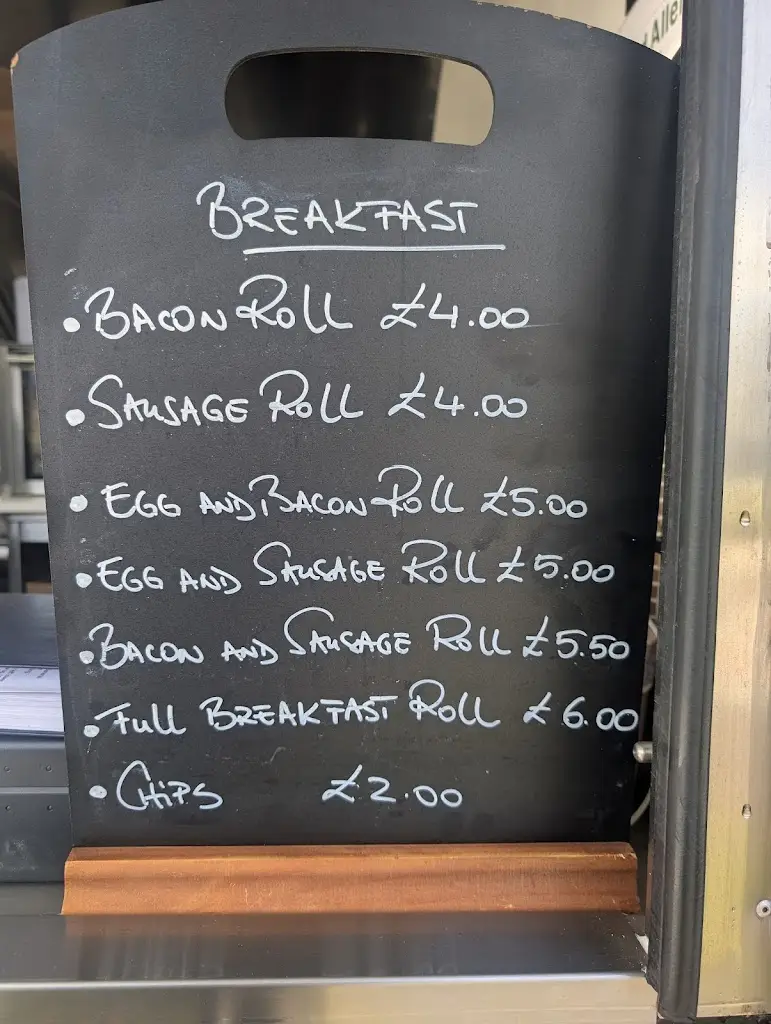 BREAKFAST
• BACON ROLL £4.00
• SAUSAGE ROLL £4.00
• EGG AND BACON ROLL £5.00
• EGG AND SAUSAGE ROLL £5.00
• BACON AND SAUSAGE ROLL £5.50
• FULL BREAKFAST ROLL £6.00
• CHIPS £2.00